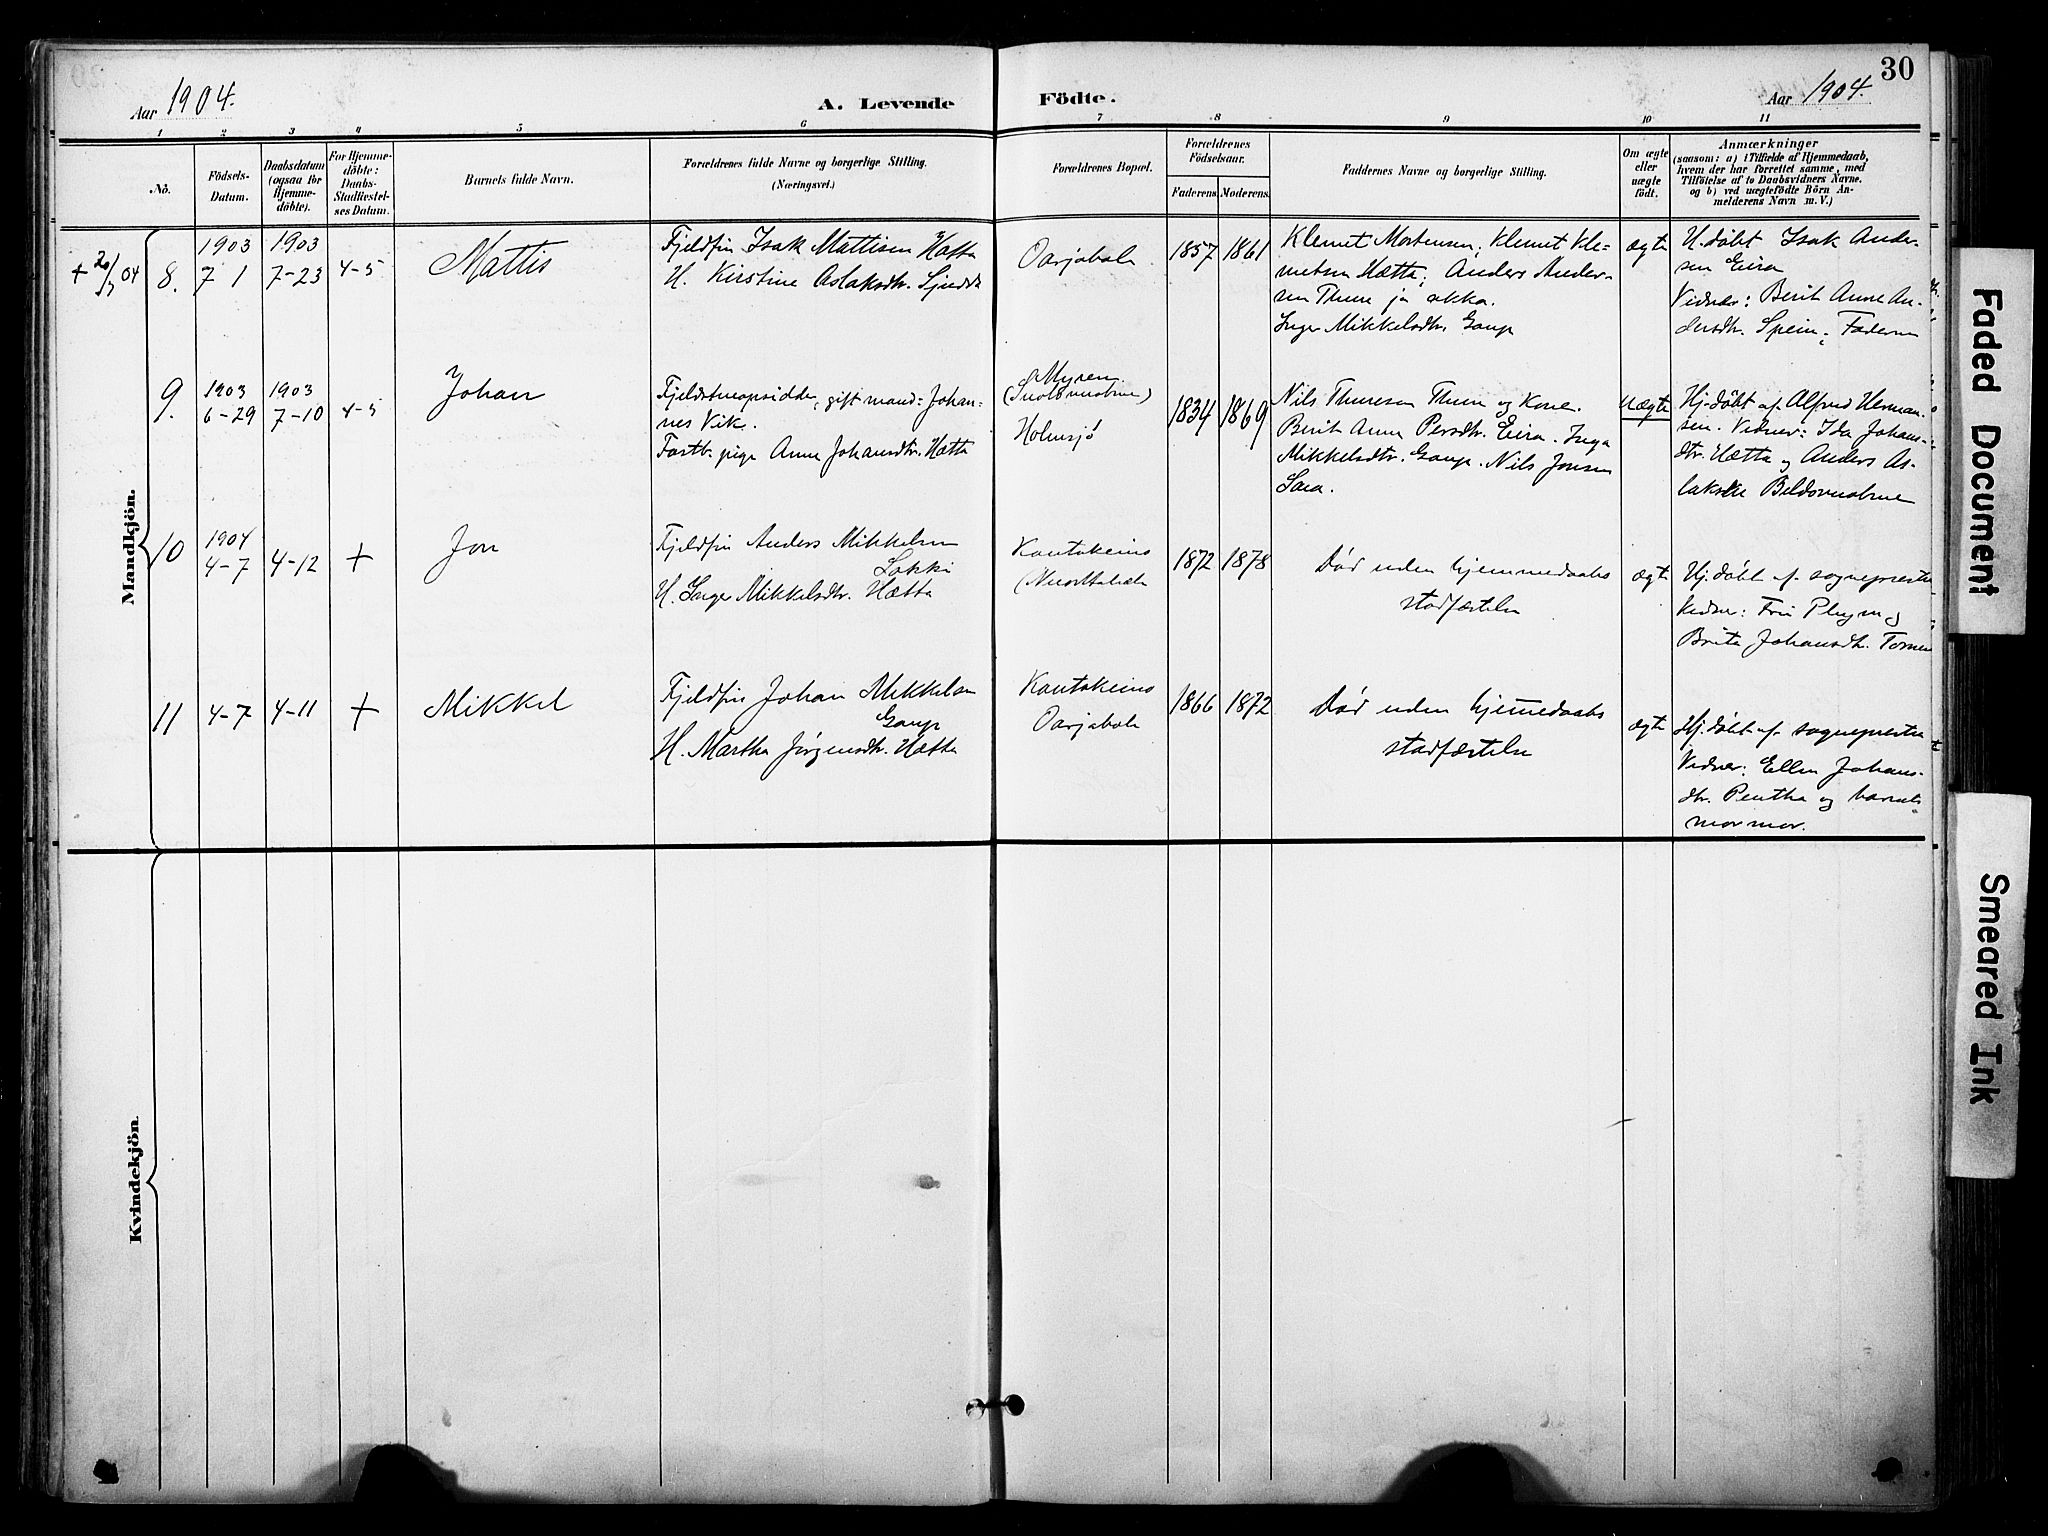 30
Aar 1904.
A. Levende Födte.
Aar 1904.
1 2 3 4 5 6 7 8 9 10 11
No.
Födsels-
Datum.
Daabsdatum
(ogsaa for
Hjemme-
döbte).
For Hjemme-
döbte:
Daabs-
Stadfæstel-
ses Datum.
Barnets fulde Navn.
Forældrenes fulde Navne og borgerlige Stilling.
(Næringsvei.)
Forældrenes Bopæl.
Forældrenes
Födselsaar.
Faderens
Moderens.
Faddernes Navne og borgerlige Stilling.
Om ægte
eller
uægte
født.
Anmærkninger
(saasom: a) i Tilfælde af Hjemmedaab,
hvem der har forrettet samme, med
Tilföielse af to Daabsvidners Navne.
og b) ved uægtefödte Börn An-
melderens Navn m. V.)
Mandkjön.
8.
1903
7 1
1903
7-23
4-5
Mattis
Fjeldfin Isak Mattisen Hætta
H. Kirstine Aslaksdtr.
Oarjabale
1857
1861
Klemet Mortensen, Klemet Kle-
metsen Hætta, Anders Ander-
sen Thure ja akka.
Inger Mikkelsdtr. Gaup
ægte
H.døbt Isak Ander-
sen Eira
Vidner: Berit Anne An-
dersdtr. Spein, Faderen
9.
1903
6-29
1903
7-10
4-5
Johan
Fjeldstueopsidder, gift mand: Johan-
nes Vik.
Fostb. pige Anne Johansdtr. Hætta
Myren
Holmsjø
1834
1869
Nils Thuresen Thure og Kone.
Berit Anne Persdtr. Eira. Inga
Mikkelsdtr. Gaup. Nils Jonsen
Sara.
Uægte
Hj.døbt af Alfred Herman-
sen. Vidner: Ida Johans-
dtr. Hætta og Anders As-
10
1904
4-7
4-12
+
Jon
Fjeldfin Anders Mikkelsen
Sokki
H. Inger Mikkelsdtr. Hætta
Kautokeino
1872
1878
Død uden hjemmedaabs
stadfæstelse
ægte
Hj.døbt af sognepresten
Brita Johansdtr.
11
4-7
4-11
+
Mikkel
Fjeldfin Johan Mikkelsen
Gaup
H. Martha Jørgensdtr. Hætta
Kautokeino
Oarjabale
1866
1872
Død uden hjemmedaabs
stadfæstelse
ægte
Hj.døbt af sognepresten
Vidner: Ellen Johans-
dtr. Pentha og barnets
mormor.
Kvindekjön.
Faded Document
Smeared Ink